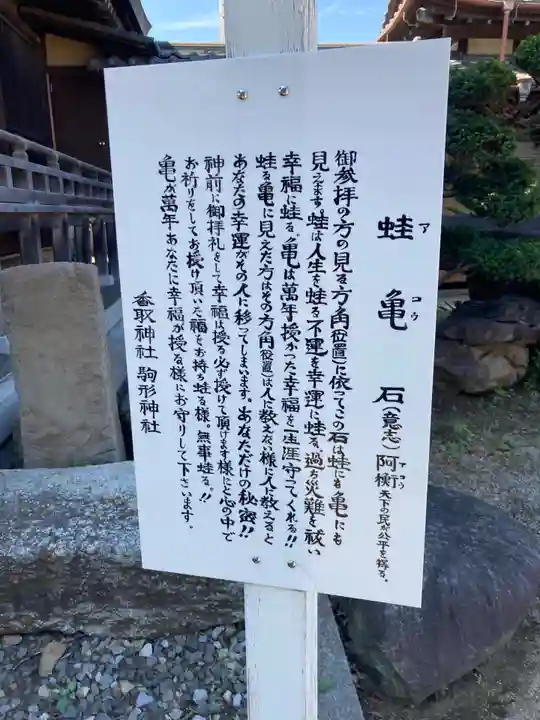 蛙亀石(意志)阿衡 天下の民が公平を得る。
ア コウ アコウ
御参拝の方の見る方角(位置)に依ってこの石は蛙にも亀にも
見えます。蛙は人生を蛙る、不運を幸運に蛙る。過ち災難を祓い
幸福に蛙る。亀は萬年授かった幸福を一生涯守ってくれる!!
蛙る亀に見えた方はその方角(位置)は人に教えない様に人に教えると
あなたの幸運がその人に移ってしまいます。あなただけの秘密!!
神前に御拝礼をして幸福は授る必ず授けて頂けます様にと心の中で
お祈りをしてお授け頂いた福をお持ち蛙る様。無事蛙る。!!
亀が萬年あなたに幸福が授る様にお守りして下さいます。
香取神社 駒形神社